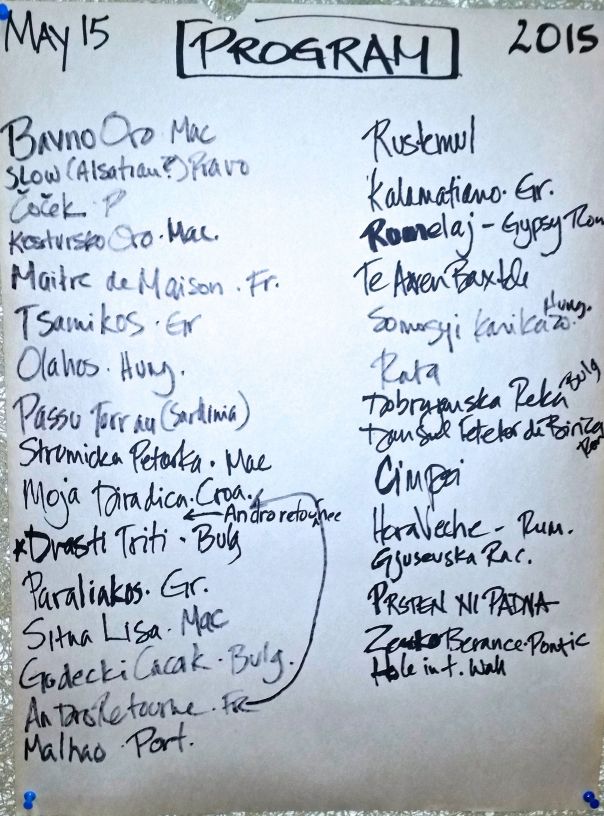 MAY 15 [PROGRAM] 2015
Bavno Oro · Mac
Slow (Alsatian?) Pravo
Čoček P
Kostursko Oro · Mac.
Maitre de Maison · Fr.
Tsamikos · Gr
Olahos · Hung.
Passu Torrau (Sardinia)
Strumicka Petorka · Mac
Moja Diradica · Croa.
← Andro retournee
*Drasti Triti · Bulg
Paraliakos · Gr.
Sitna Lisa · Mac
Godecki Cacak · Bulg.
An Dro Retourne · Fr.
Malhao · Port.
Rustemul
Kalamatiano · Gr.
Romelaj - Gypsy Rom
Te Aven Baxtale
Somogyi Karikazo · Hung.
Rata
Dobrujanska Reka Bulg
Dansul Fetelor de Birița Rom
Cimpoi
Hora Veche - Rum.
Gjusevska Rac.
PRSTEN NI PADNA
Berance · Pontic
Hole in t. Wall